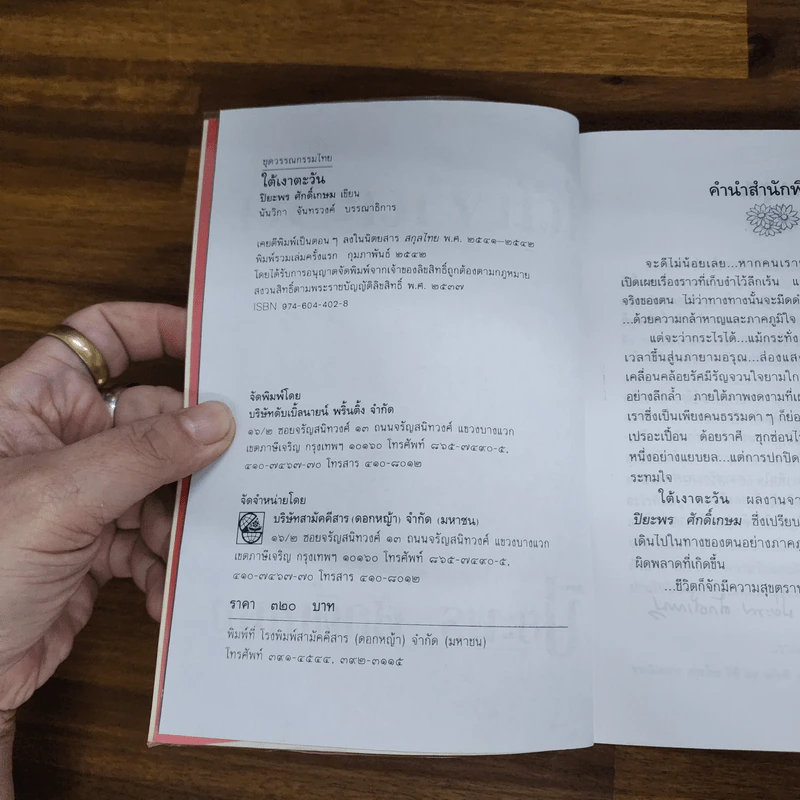 ชุดวรรณกรรมไทย
ใต้เงาตะวัน
ปิยะพร ศักดิ์เกษม เขียน
นันวิกา จันทรวงศ์ บรรณาธิการ
เคยตีพิมพ์เป็นตอนๆ ลงในนิตยสาร สกุลไทย พ.ศ. ๒๕๔๑—๒๕๔๒
พิมพ์รวมเล่มครั้งแรก กุมภาพันธ์ ๒๕๔๒
โดยได้รับการอนุญาตจัดพิมพ์จากเจ้าของลิขสิทธิ์ถูกต้องตามกฎหมาย
สงวนสิทธิ์ตามพระราชบัญญัติลิขสิทธิ์ พ.ศ. ๒๕๓๗
ISBN 974-604-402-8
จัดพิมพ์โดย
บริษัทดับเบิ้ลนายน์ พริ้นติ้ง จำกัด
๑๖/๒ ซอยจรัญสนิทวงศ์ ๑๓ ถนนจรัญสนิทวงศ์ แขวงบางแวก
เขตภาษีเจริญ กรุงเทพฯ ๑๐๑๖๐ โทรศัพท์ ๘๖๕-๗๔๙๐-๕,
๔๑๐-๗๔๖๗-๗๐ โทรสาร ๔๑๐-๘๐๑๒
จัดจำหน่ายโดย
บริษัทสามัคคีสาร (ดอกหญ้า) จำกัด (มหาชน)
๑๖/๒ ซอยจรัญสนิทวงศ์ ๑๓ ถนนจรัญสนิทวงศ์ แขวงบางแวก
เขตภาษีเจริญ กรุงเทพฯ ๑๐๑๖๐ โทรศัพท์ ๘๖๕-๗๔๙๐-๕,
๔๑๐-๗๔๖๗-๗๐ โทรสาร ๔๑๐-๘๐๑๒
ราคา ๓๒๐ บาท
พิมพ์ที่ โรงพิมพ์สามัคคีสาร (ดอกหญ้า) จำกัด (มหาชน)
โทรศัพท์ ๓๙๑-๔๕๔๔, ๓๙๒-๓๑๑๕
คำนำสำนักพิ
จะดีไม่น้อยเลย...หากคนเรา
เปิดเผยเรื่องราวที่เก็บงำไว้ลึกเร้น
จริงของตน ไม่ว่าทางทางนั้นจะมืดด
...ด้วยความกล้าหาญและภาคภูมิใจ
แต่จะว่ากระไรได้...แม้กระทั่ง
เวลาขึ้นสู่นภายามอรุณ...ส่องแส
เคลื่อนคล้อยรัศมีรัญจวนใจยามใก
อย่างลึกล้ำ ภายใต้ภาพงดงามที่เ
เราซึ่งเป็นเพียงคนธรรมดาๆ ก็ย่อ
เปรอะเปื้อน ด้อยราศี ซุกซ่อนไ
หนึ่งอย่างแยบยล...แต่การปกปิด
ระทมใจ
ใต้เงาตะวัน ผลงานจา
ปิยะพร ศักดิ์เกษม ซึ่งเปรียบ
เดินไปในทางของตนอย่างภาคภ
ผิดพลาดที่เกิดขึ้น
...ชีวิตก็จักมีความสุขตรา